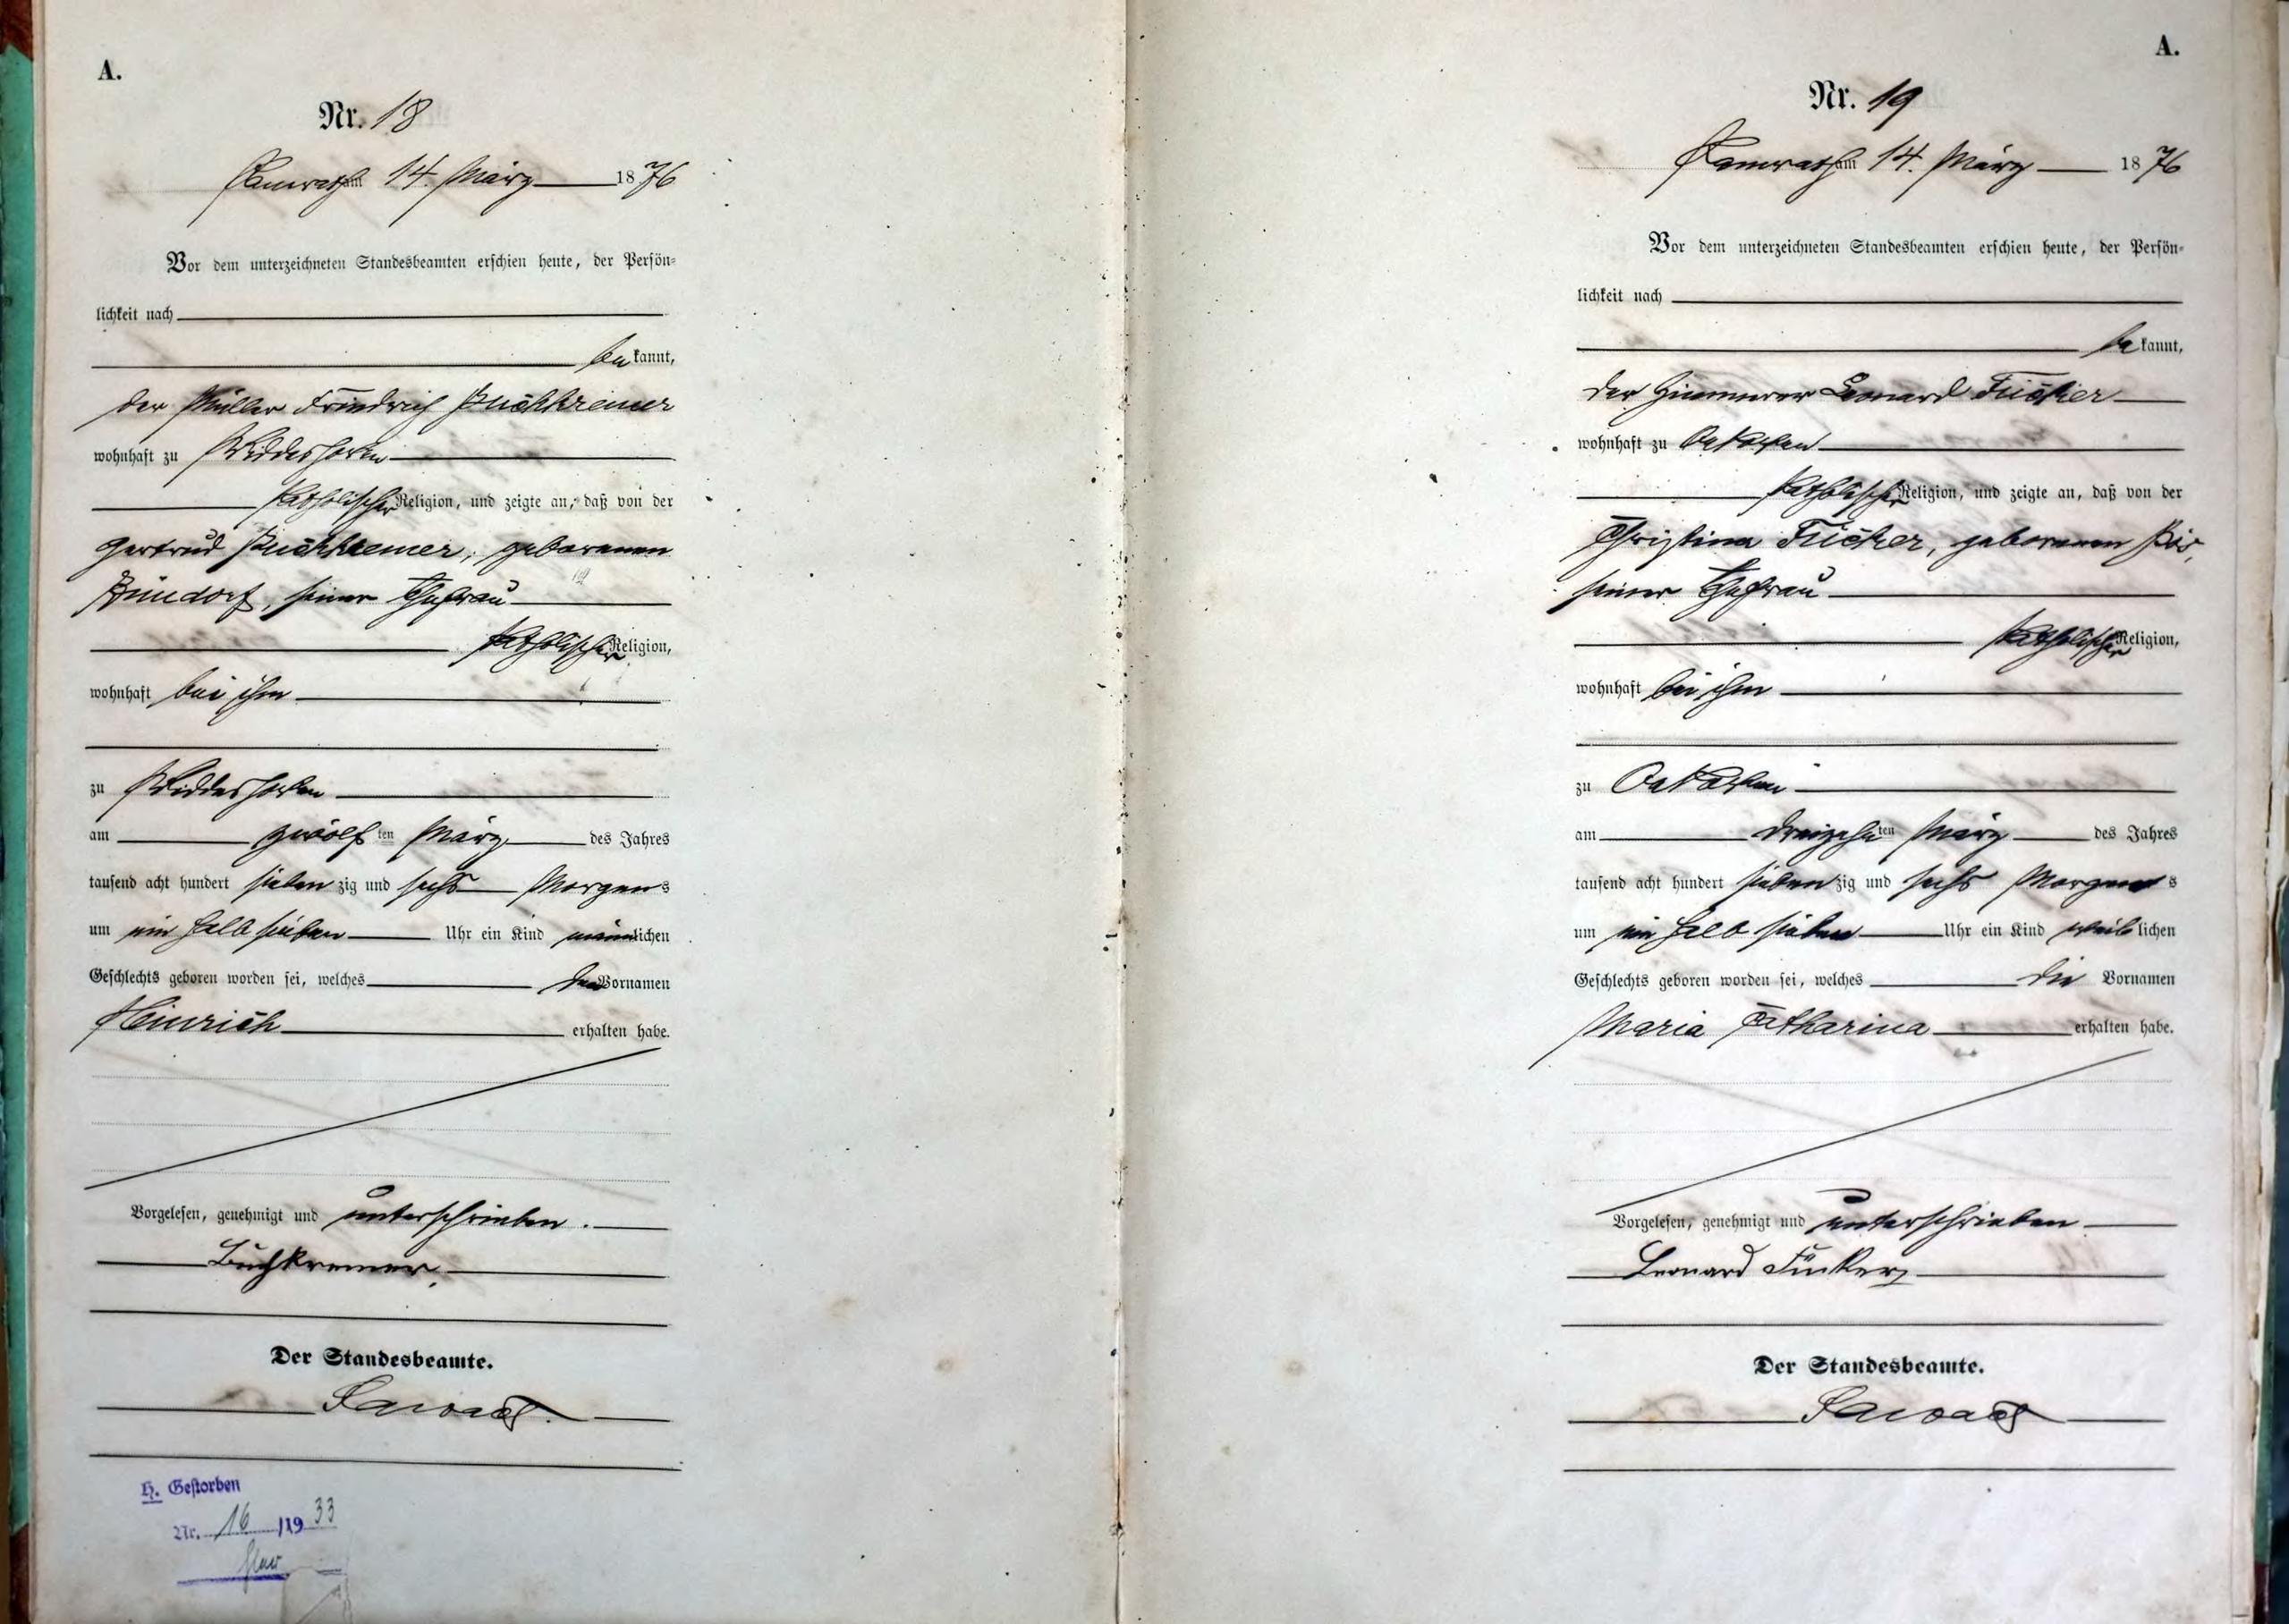 A.
Nr. 18
am 14. März 1876
Vor dem unterzeichneten Standesbeamten erschien heute, der Persön=
lichkeit nach
bekannt,
der Müller Friedrich Buchkremer
wohnhaft zu Widdeshoven
katholischer Religion, und zeigte an, daß von der
Gertrud Buchkremer, geborenen
seiner Ehefrau
katholischer Religion,
wohnhaft bei ihm
zu Widdeshoven
am zwölften März des Jahres
tausend acht hundert siebenzig und sechs Morgens
um ein halb sieben Uhr ein Kind männlichen
Geschlechts geboren worden sei, welches den Vornamen
Heinrich erhalten habe.
Vorgelesen, genehmigt und unterschrieben.
Buchkremer
Der Standesbeamte.
H. Gestorben
Nr. 16 /1933
A.
Nr. 19
am 14. März 1876
Vor dem unterzeichneten Standesbeamten erschien heute, der Persön=
lichkeit nach
bekannt,
der Zimmerer Leonard Fücker
wohnhaft zu Oekoven
katholischer Religion, und zeigte an, daß von der
Christina Fücker, geborenen
seiner Ehefrau
katholischer Religion,
wohnhaft bei ihm
zu Oekoven
am dreizehnten März des Jahres
tausend acht hundert siebenzig und sechs Morgens
um ein halb sieben Uhr ein Kind weiblichen
Geschlechts geboren worden sei, welches die Vornamen
Maria Catharina erhalten habe.
Vorgelesen, genehmigt und unterschrieben
Leonard
Der Standesbeamte.